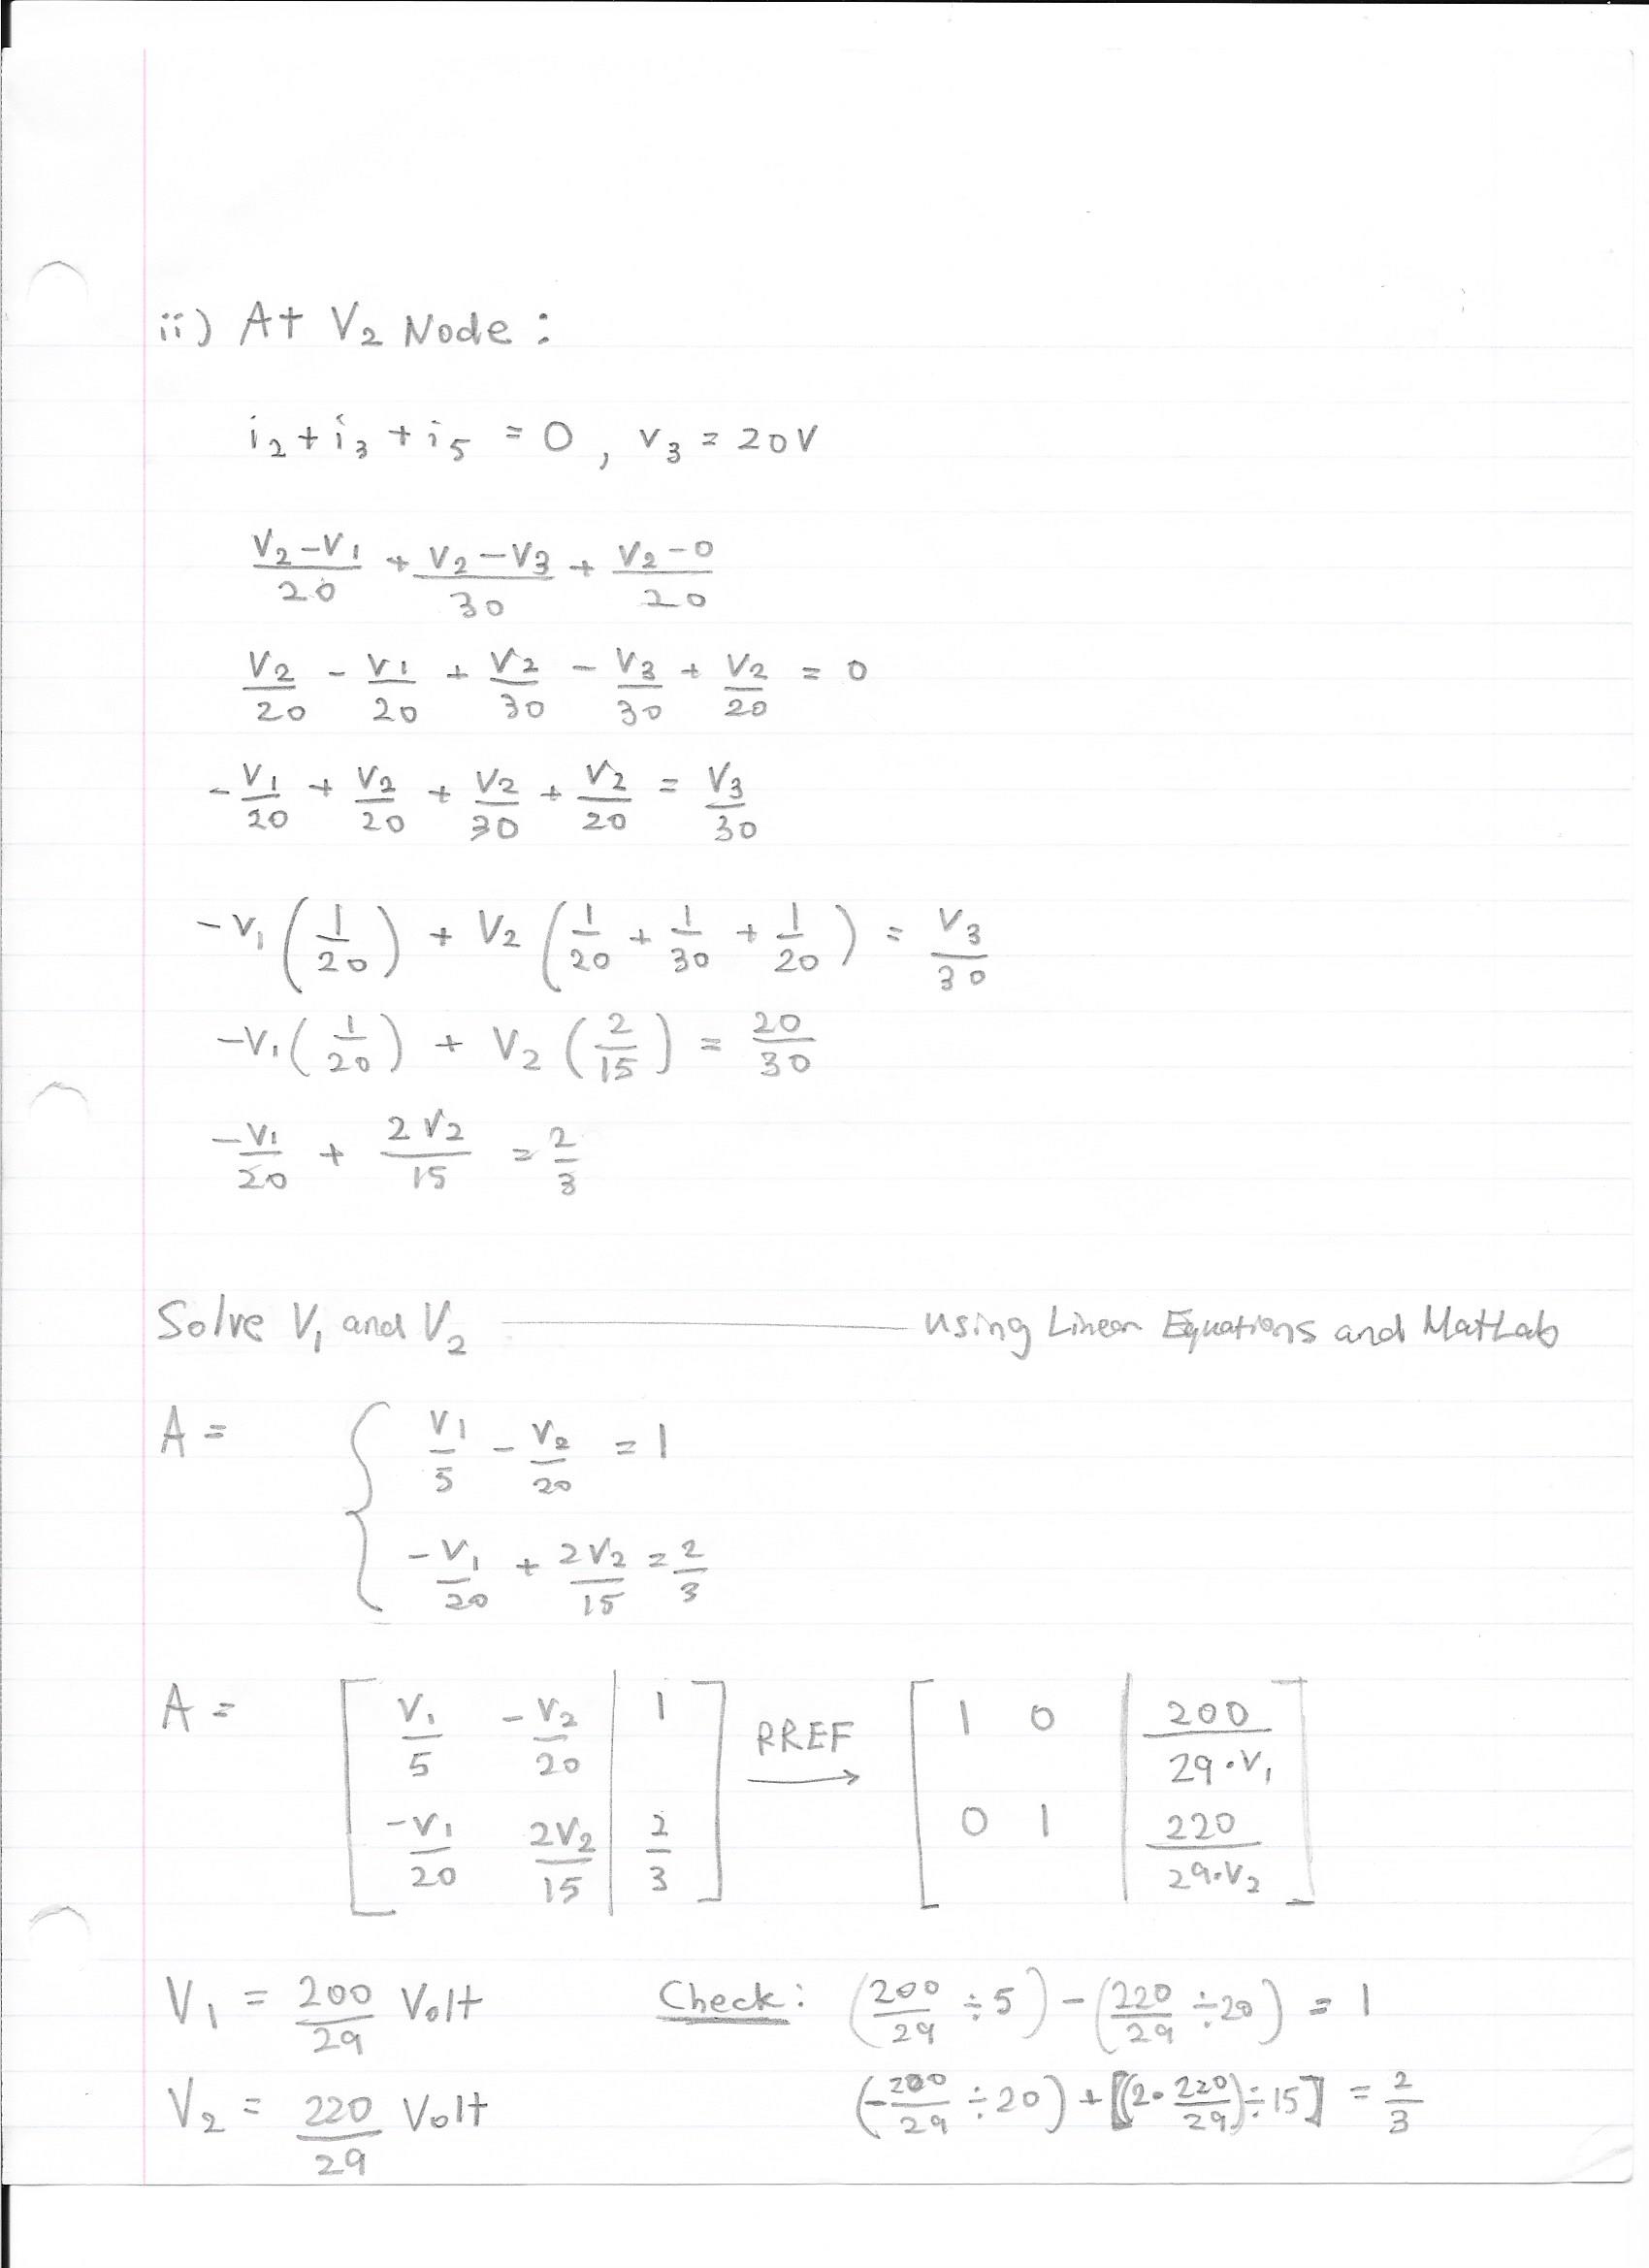 ii) At V₂ Node :
i₂ + i₃ + i₅ = 0 , V₃ = 20V
(V₂ - V₁)/20 + (V₂ - V₃)/30 + (V₂ - 0)/20
V₂/20 - V₁/20 + V₂/30 - V₃/30 + V₂/20 = 0
-V₁/20 + V₂/20 + V₂/30 + V₂/20 = V₃/30
-V₁ (1/20) + V₂ (1/20 + 1/30 + 1/20) = V₃/30
-V₁ (1/20) + V₂ (2/15) = 20/30
-V₁/20 + 2V₂/15 = 2/3
Solve V₁ and V₂ ——— using Linear Equations and MatLab
A = { V₁/5 - V₂/20 = 1
-V₁/20 + 2V₂/15 = 2/3
A = [ V₁/5 -V₂/20 | 1 ] RREF → [ 1 0 | 200/(29·V₁) ]
[ -V₁/20 2V₂/15 | 2/3 ] [ 0 1 | 220/(29·V₂) ]
V₁ = 200/29 Volt Check: (200/29 ÷ 5) - (220/29 ÷ 20) = 1
V₂ = 220/29 Volt (-200/29 ÷ 20) + [(2·220/29) ÷ 15] = 2/3